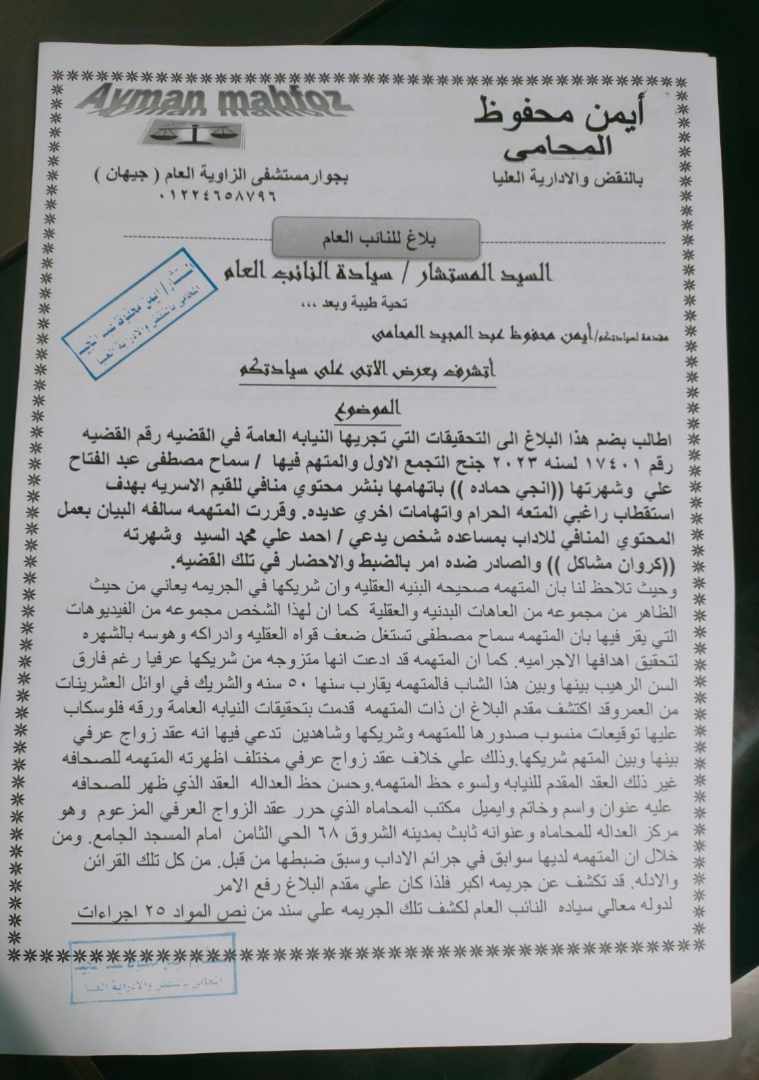 Ayman mahfoz
أيمن محفوظ
المحامى
بالنقض والادارية العليا
بجوار مستشفى الزاوية العام ( جيهان )
٠١٢٢٤٦٥٨٧٩٦
بلاغ للنائب العام
السيد المستشار / سيادة النائب العام
تحية طيبة وبعد ،،،
مقدمة لسيادتكم/أيمن محفوظ عبد المجيد المحامى
أتشرف بعرض الاتى على سيادتكم
الموضوع
اطالب بضم هذا البلاغ الى التحقيقات التي تجريها النيابه العامة في القضيه رقم القضيه
رقم ١٧٤٠١ لسنه ٢٠٢٣ جنح التجمع الاول والمتهم فيها / سماح مصطفى عبد الفتاح
علي وشهرتها ((انجي حماده )) باتهامها بنشر محتوي منافي للقيم الاسريه بهدف
استقطاب راغبي المتعه الحرام واتهامات اخري عديده. وقررت المتهمه سالفه البيان بعمل
المحتوي المنافي للاداب بمساعده شخص يدعي / احمد علي محمد السيد وشهرته
((كروان مشاكل )) والصادر ضده امر بالضبط والاحضار في تلك القضيه.
وحيث تلاحظ لنا بان المتهمه صحيحه البنيه العقليه وان شريكها في الجريمه يعاني من حيث
الظاهر من مجموعه من العاهات البدنيه والعقلية كما ان لهذا الشخص مجموعه من الفيديوهات
التي يقر فيها بان المتهمه سماح مصطفى تستغل ضعف قواه العقليه وادراكه وهوسه بالشهره
لتحقيق اهدافها الاجراميه. كما ان المتهمه قد ادعت انها متزوجه من شريكها عرفيا رغم فارق
السن الرهيب بينها وبين هذا الشاب فالمتهمه يقارب سنها ٥٠ سنه والشريك في اوائل العشرينات
من العمروقد اكتشف مقدم البلاغ ان ذات المتهمه قدمت بتحقيقات النيابه العامة ورقه فلوسكاب
عليها توقيعات منسوب صدورها للمتهمه وشريكها وشاهدين تدعي فيها انه عقد زواج عرفي
بينها وبين المتهم شريكها.وذلك علي خلاف عقد زواج عرفي مختلف اظهرته المتهمه للصحافه
غير ذلك العقد المقدم للنيابه ولسوء حظ المتهمه.وحسن حظ العداله العقد الذي ظهر للصحافه
عليه عنوان واسم وخاتم وايميل مكتب المحاماه الذي حرر عقد الزواج العرفي المزعوم وهو
مركز العداله للمحاماه وعنوانه ثابث بمدينه الشروق ٦٨ الحي الثامن امام المسجد الجامع. ومن
خلال ان المتهمه لديها سوابق في جرائم الاداب وسبق ضبطها من قبل. من كل تلك القرائن
والادله. قد تكشف عن جريمه اكبر فلذا كان علي مقدم البلاغ رفع الامر
لدوله معالي سياده النائب العام لكشف تلك الجريمه علي سند من نص المواد ٢٥ اجراءات